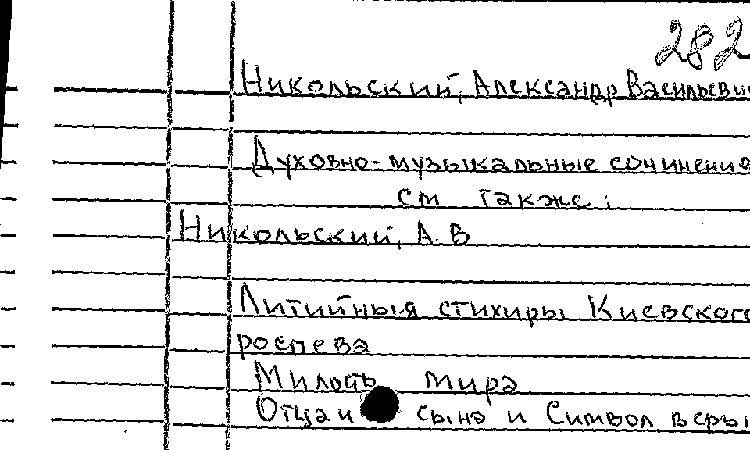 282
Никольский, Александр Васильевич
Духовно-музыкальные сочинения
см также:
Никольский, А.В
Литийныя стихиры Киевского
роспева
Милость мира
Отца и сына и Символ веры